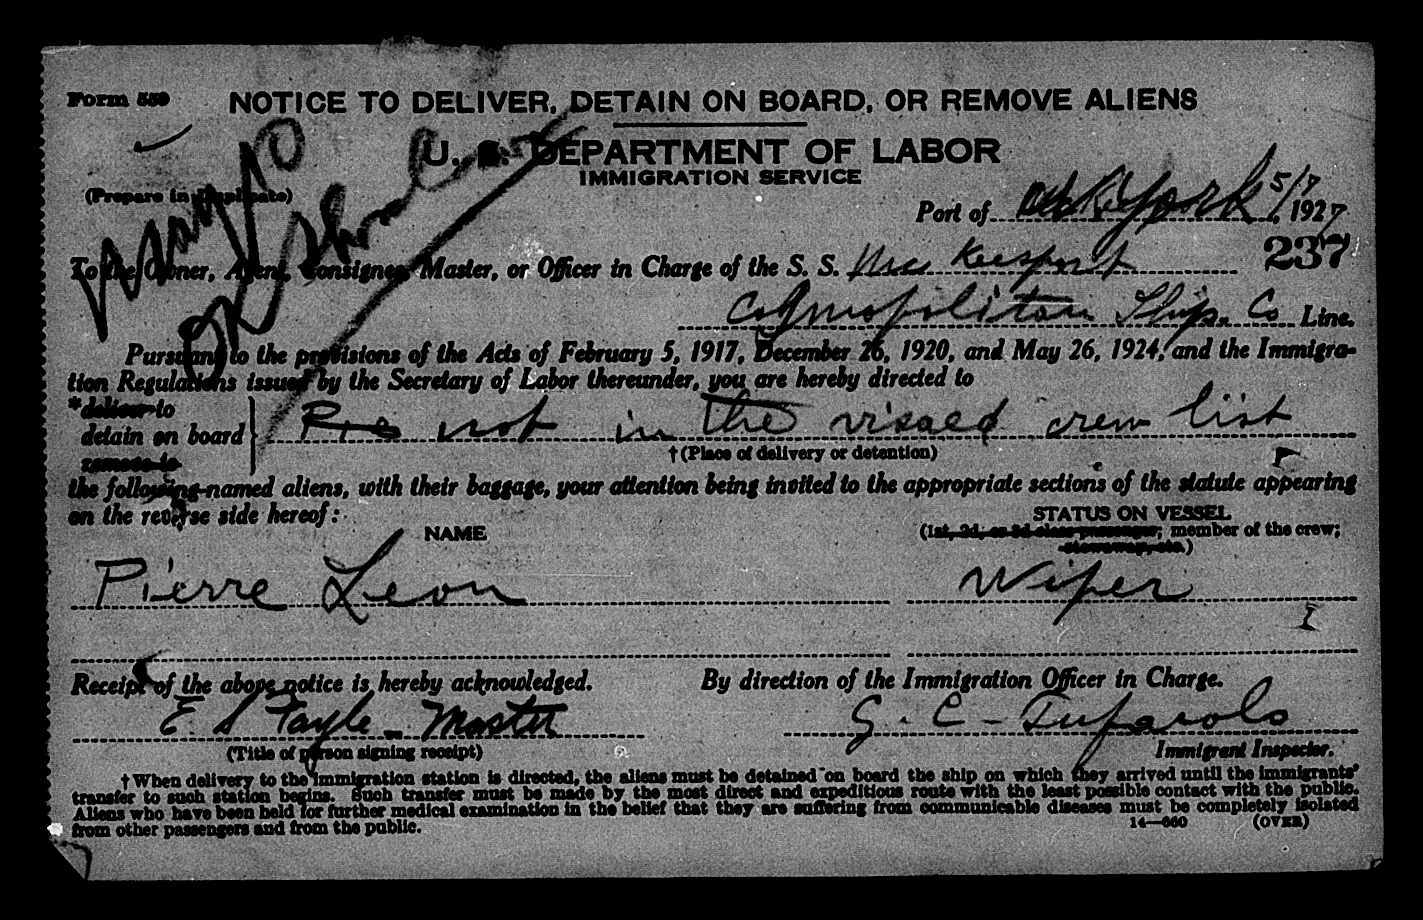 Form 559
NOTICE TO DELIVER, DETAIN ON BOARD, OR REMOVE ALIENS
U. S. DEPARTMENT OF LABOR
IMMIGRATION SERVICE
(Prepare in duplicate)
May go
on Shore
Port of York 5/7, 1927
To the Owner, Agent, Consignee, Master, or Officer in Charge of the S. S. Mc Keesport
237
Cosmopolitan Ship. Co Line.
Pursuant to the provisions of the Acts of February 5, 1917, December 26, 1920, and May 26, 1924, and the Immigra-
tion Regulations issued by the Secretary of Labor thereunder, you are hereby directed to
*deliver to
detain on board
remove to
not in the visaed crew list
†(Place of delivery or detention)
the following-named aliens, with their baggage, your attention being invited to the appropriate sections of the statute appearing
on the reverse side hereof:
NAME
STATUS ON VESSEL
(1st, 2d, or 3d class passenger; member of the crew;
stowaway, etc.)
Pierre Leon Wiper
Receipt of the above notice is hereby acknowledged.
By direction of the Immigration Officer in Charge.
E S Master
G. C -
(Title of person signing receipt)
Immigrant Inspector.
†When delivery to the immigration station is directed, the aliens must be detained on board the ship on which they arrived until the immigrants'
transfer to such station begins. Such transfer must be made by the most direct and expeditious route with the least possible contact with the public.
Aliens who have been held for further medical examination in the belief that they are suffering from communicable diseases must be completely isolated
from other passengers and from the public.
14—660 (OVER)